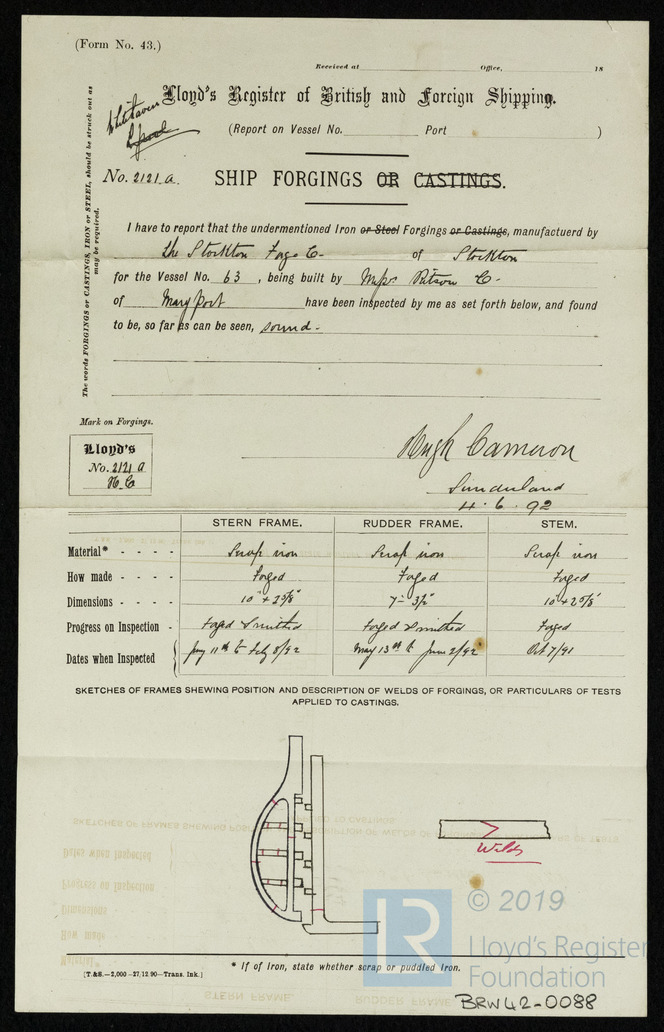 (Form No. 43.)
Received at Office, 18
Lloyd's Register of British and Foreign Shipping.
Whitehaven
(Report on Vessel No. Port )
No. 2121 a. SHIP FORGINGS OR CASTINGS.
The words FORGINGS or CASTINGS, IRON or STEEL, should be struck out as
may be required.
I have to report that the undermentioned Iron or Steel Forgings or Castings, manufactuerd by
The Stockton Forge Co of Stockton
for the Vessel No. 63, being built by Messrs Ritson Co
of Maryport have been inspected by me as set forth below, and found
to be, so far as can be seen, sound.
Mark on Forgings.
Lloyd's
No. 2121 a
H.C
Hugh Cameron
Sunderland
4.6.92
STERN FRAME. RUDDER FRAME. STEM.
Material* - - - - Scrap iron Scrap iron Scrap iron
How made - - - - Forged Forged Forged
Dimensions - - - - 10" × 2 5/8" 7" - 3 1/2" 10" × 2 5/8"
Progress on Inspection - Forged & smithed Forged & smithed Forged
Dates when Inspected Jany 11th to Feby 8/92 May 13th to June 2/92 Oct 7/91
SKETCHES OF FRAMES SHEWING POSITION AND DESCRIPTION OF WELDS OF FORGINGS, OR PARTICULARS OF TESTS
APPLIED TO CASTINGS.
Welds
* If of Iron, state whether scrap or puddled iron.
[T.&S.—2,000—27.12.90—Trans. Ink.]
LR
© 2019
Lloyd's Register
Foundation
BRW42-0088